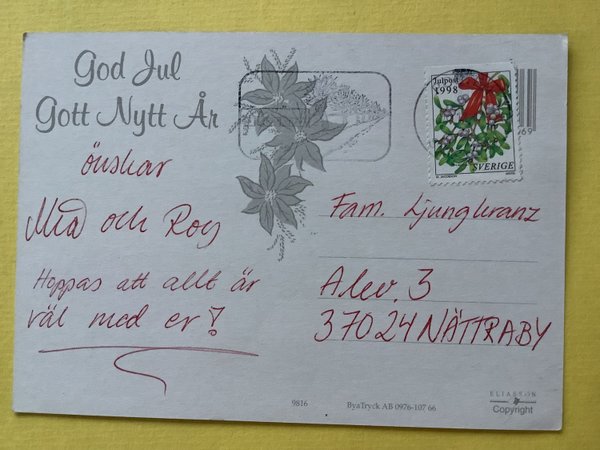 God Jul
Gott Nytt År
önskar
Mia och Roy
Hoppas att allt är
väl med er!
Julpost
1998
SVERIGE
Fam. Ljungkranz
Alev. 3
37024 NÄTTRABY
9816
ByaTryck AB 0976-107 66
ELIASSON
Copyright